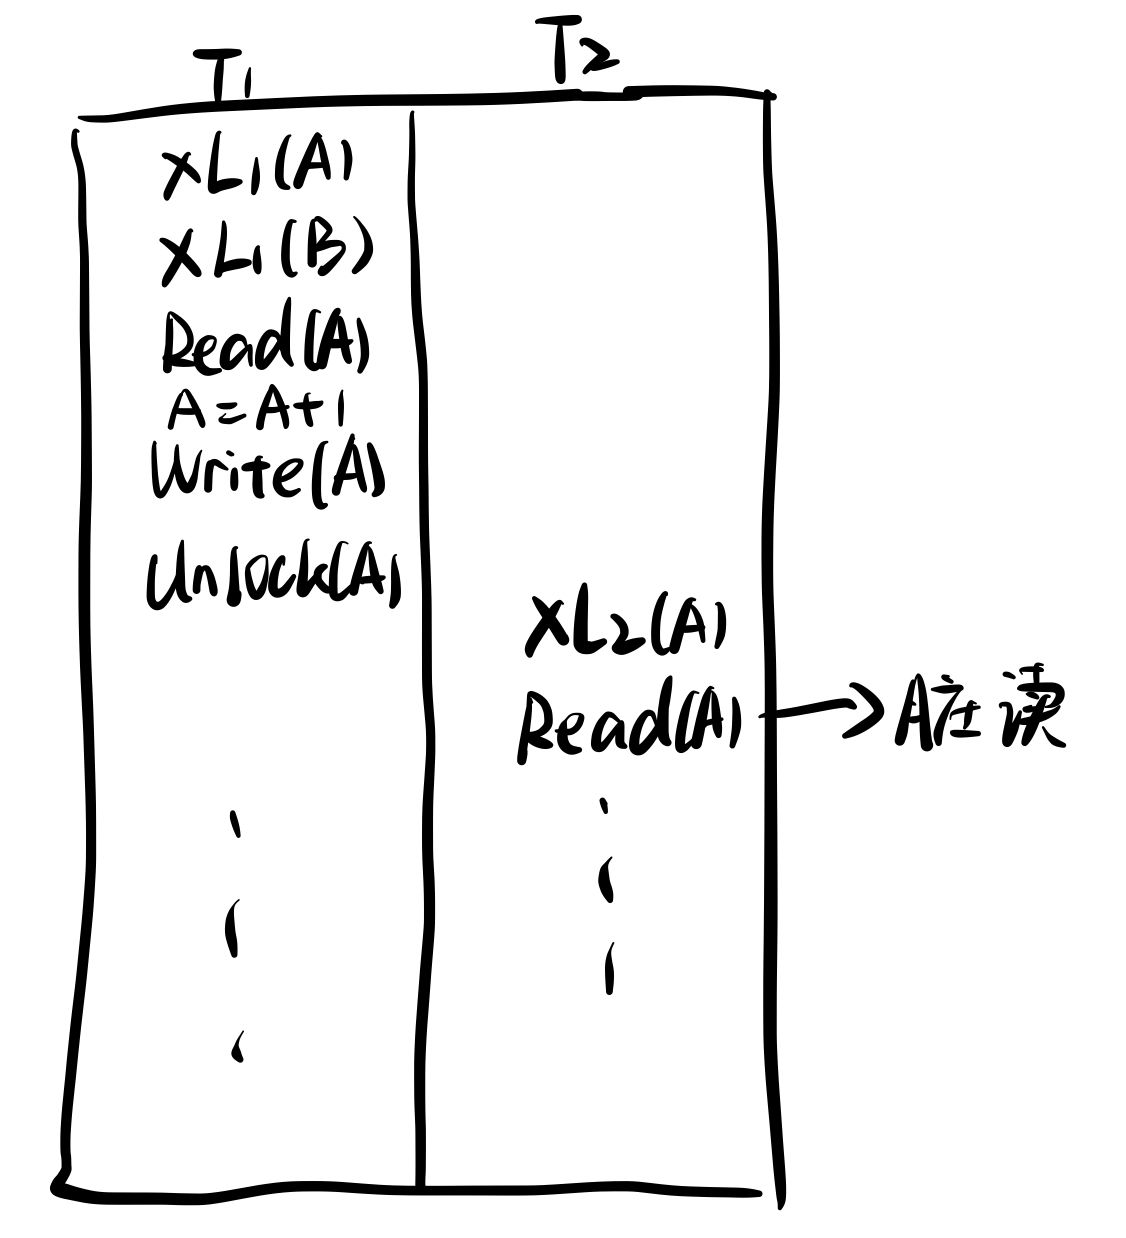 T1
T2
XL1(A)
XL1(B)
Read(A)
A=A+1
Write(A)
Unlock(A)
XL2(A)
Read(A)
A在读